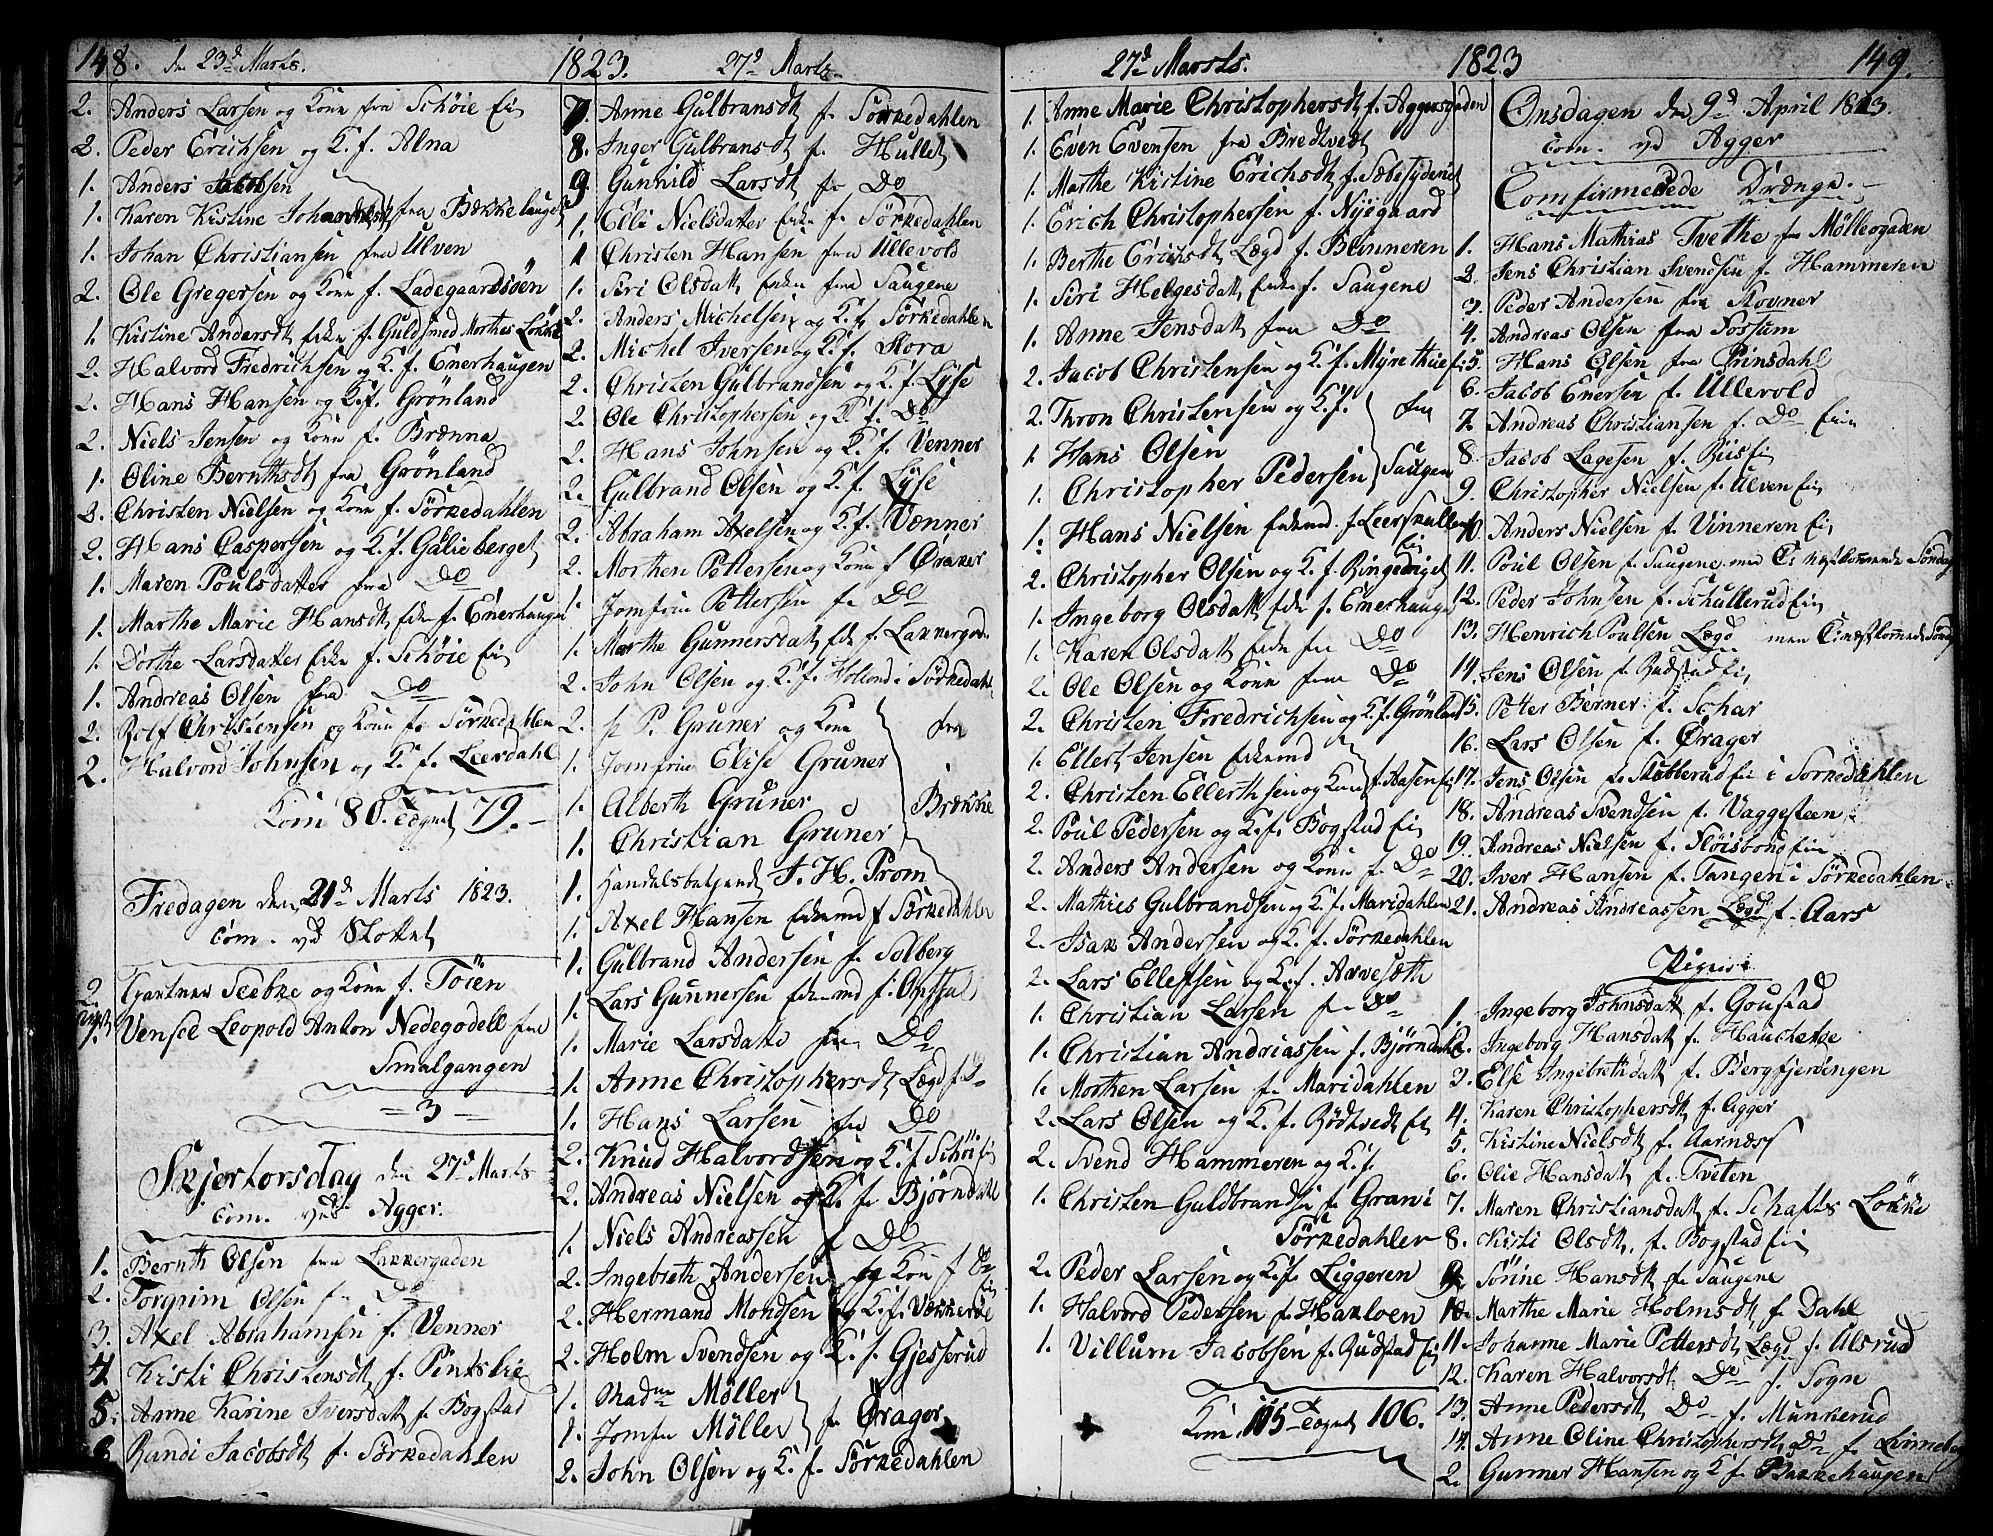 148. den 23d Marts. 1823. 27d Marts
2. Anders Larsen og Kone fra Schöie Ei
2. Peder Erichsen og K. f. Alna
1. Anders Jacobsen
1. Karen Kistine Johansdt fra Bækkelauget
1. Johan Christiansen fra Ulven
2. Ole Gregersen og Kone f. Ladegaardsöen
1. Kistine Andersdt Enke f. Guldsmed Morthes Løkke
2. Halvord Fredrichsen og K. f. Enerhaugen
2. Hans Hansen og K. f. Grönland
2. Niels Jensen og Kone f. Brænna
1. Oline Bernthsdt fra Grönland
2. Christen Nielsen og Kone f. Sörkedahlen
2. Hans Caspersen og K. f. Galieberget
1. Maren Poulsdatter fra Do
1. Marthe Marie Hansdt Enke f. Enerhaugen
1. Dorthe Larsdatter Enke f. Schöie Ei
1. Andreas Olsen fra Do
2. Rolf Christensen og Kone fr Sörkedahlen
2. Halvord Johnsen og K. f. Leerdahl
Kom 80. Tegnet 79.
Fredagen den 21d Marts 1823.
Com. vd Slottet
2. Gartner Seebke og Kone f. Töien
1. Vensel Leopold Anton Nedegodell fra
Smalgangen
= 3 =
Skjertorsdag den 27d Marts
Com. ved Agger.
1. Bernth Olsen fra Lakkergaden
2. Torgrim Olsen fra Do
3. Axel Abrahamsen f. Venner
4. Kisti Christensdt f. Pintslie
5. Anne Karine Iversdatt f. Bogstad
6. Randi Jacobsdt f. Sörkedahlen
7. Anne Gulbransdt f. Sörkedahlen
8. Inger Gulbransdt f. Hullet
9. Gunnild Larsdt f. Do
1. Elli Nielsdatter Enke f. Sörkedahlen
1. Christen Hansen fra Ullevold
1. Siri Olsdatt Enke fra Saugene
2. Anders Michelsen og K. f. Sörkedahlen
2. Michel Iversen og K. f. Skora
2. Christen Gulbrandsen og K. f. Lyse
2. Ole Christophersen og K. f. Do
2. Hans Johnsen og K. f. Venner
2. Gulbrand Olsen og K. f. Lyse
2. Abraham Axelsen og K. f. Vænner
2. Morthen Pettersen og Kone f Oraker
1. Jomfrue Pettersen fr Do
1. Marthe Gunnersdatt Enke f. Lakkergad.
2. John Olsen og K. f. Holland i Sörkedahl.
2. P. Gruner og Kone fra
1. Jomfrue Elise Gruner
1. Alberth Gruner Brække
1. Christian Gruner
1. Handelsbetjent J. H. Prom
1. Axel Hansen Enkemd f Sörkedahlen
1. Gulbrand Andersen f. Solberg
1. Lars Gunnersen Enkemd f. Opsal
1. Marie Larsdatt fra Do
1. Anne Christophersdt Lægd f Do
1. Hans Larsen fra Do
2. Knud Halvordsen og K. f Schöi Ei
2. Andreas Nielsen og K. f. Björndahl
1. Niels Andreassen f Do
2. Ingebreth Andersen og Kone f Do
2. Hermand Mondsen og K. f. Vækkeröe Ei
2. Holm Svendsen og K. f. Gjesserud
1. Madme Møller
1. Jomfru Møller f. Orager
2. John Olsen og K. f. Sörkedahlen
27d Marsts. 1823 149.
1. Anne Marie Christophersdt f. Aggersgaden
1. Even Evensen fra Bredtvedt
1. Marthe Kistine Erichsdt f. Sæbesyderiet
1. Erich Christophersen f. Nyegaard
1. Berthe Erichsdt Lægd f. Blinneren
1. Siri Helgesdatt Enke f. Saugene
1. Anne Jensdatt fra Do
2. Jacob Christensen og K. f. Myrethueie
2. Thron Christensen og K. f. fra
1. Hans Olsen
1. Christopher Pedersen Saugen
1. Hans Nielsen Enkemd. f. Leerskallen Ei
2. Christopher Olsen og K. f. Ringeriget
1. Ingeborg Olsdatt Enke f. Enerhaugen
1. Karen Olsdatt Enke fra Do
2. Ole Olsen og Kone fra Do
2. Christen Fredrichsen og K. f. Grönland
1. Ellert Jensen Enkemd
2. Christen Ellerthsen og Kone f. Aasen Ei
2. Poul Pedersen og K. f. Bogstad Ei
2. Anders Andersen og Kone f. Do
2. Mathies Gulbrandsen og K. f. Maridahlen
2. Isak Andersen og K. f. Sörkedahlen
2. Lars Ellefsen og K. f. Arvesæth
1. Christian Larsen fra Do
1. Christian Andriassen f. Björndahl
1. Morthen Larsen f. Maridahlen
2. Lars Olsen og K. f. Rödtvedt Ei
2. Svend Hammeren og K. f.
1. Christen Guldbrandsen f. Gran i
Sörkedahlen
2. Peder Larsen og K. f. Liggeren
1. Halvord Pedersen f. Hakloen
1. Villum Jacobsen f. Rudstad Ei
Kom. 105 Tegnet 106.
Onsdagen den 9d April 1823.
Com. vd Agger
Comfirmerede Drænge.
1. Hans Mathias Tvethe fra Møllergaden
2. Jens Christian Svendsen f. Hammeren
3. Peder Andersen fra Stovner
4. Andreas Olsen fra Fossum
5. Hans Olsen fra Prinsdahl
6. Jacob Enersen f. Ullevold
7. Andreas Christiansen f. Do Eie
8. Jacob Lagesen f. Riis Ei
9. Christopher Nielsen f. Ulven Ei
10. Anders Nielsen f. Vinneren Ei
11. Poul Olsen f. Saugene. med C: næstkommende Söndag
12. Peder Johnsen f. Schullerud Ei
13. Henrich Poulsen Lægd med C: næstkommende Söndag
14. Jens Olsen f. Rudstad Ei
15. Petter Berner f. Schar
16. Lars Olsen f. Orager
17. Jens Olsen f. Stubberud Ei i Sorkedahlen
18. Andreas Svendsen f. Vaggesteen
19. Andreas Nielsen f. Flöisbond Eie
20. Iver Hansen f. Tangen i Sörkedahlen
21. Andreas Andreassen Lægd f. Aars
Pigerne
1. Ingeborg Johnsdatt f. Goustad
2. Ingeborg Hansdatt f. Hauckerøe
3. Else Ingebrethsdatt f. Bergfjerdingen
4. Karen Christophersdt f. Agger
5. Kistine Nielsdt f. Aarnæss
6. Olie Hansdatt f. Tveten
7. Maren Christiansdatt f. Schafts Løkke
8. Kisti Olsdt. f. Bogstad Ei
9. Sörine Hansdt f. Saugene
10. Marthe Marie Holmsdt f. Dahl
11. Johanne Marie Pettersdt Lægd f. Ulsrud
12. Karen Halvorsdt Do f. Sogn
13. Anne Pedersdt Do f. Munkerud
14. Anne Oline Christophersdt Do f. Linneberg
2. Gunner Hansen og K f. Bakkehaugen